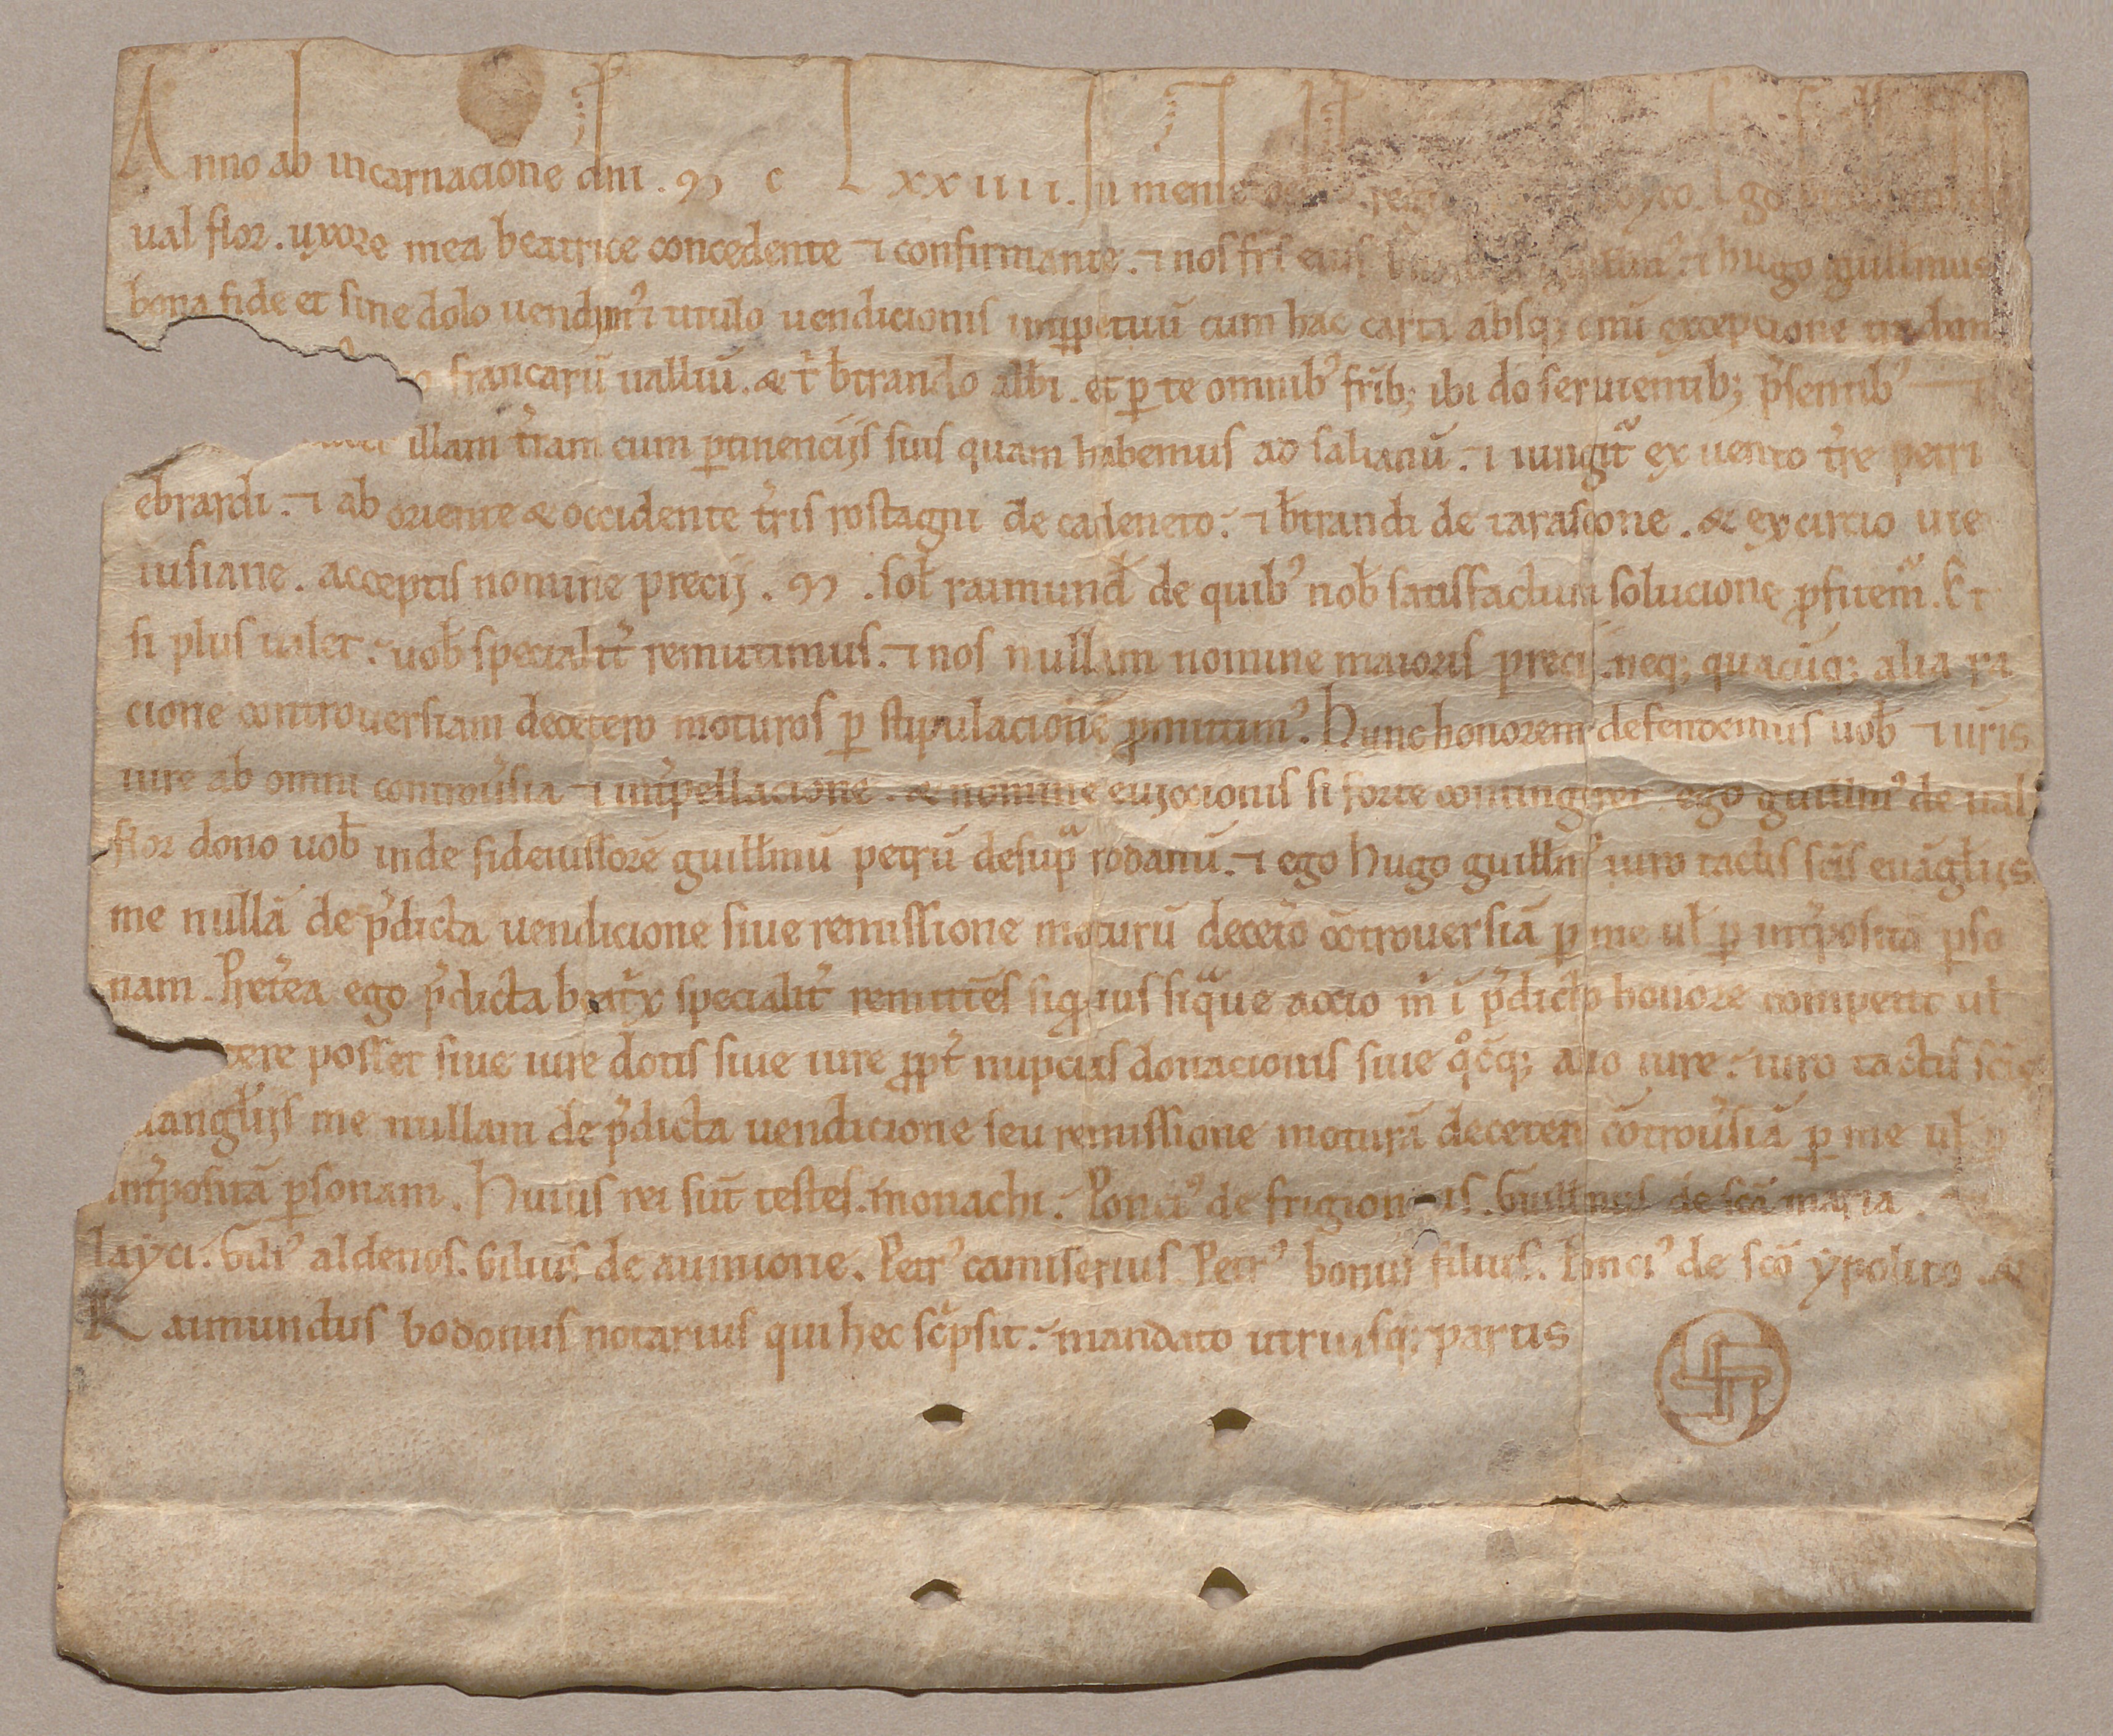 Anno ab incarnacione dn̄i. M C L XX IIII. In mense
ual flor. uxore mea beatrice concedente ⁊ confirmante. ⁊ nos fr̄s eius ⁊ hugo guillmus
bona fide et sine dolo uendimꝰ ⁊ titulo uendicionis inꝑpetuū cum hac carta absqꝫ omī excepcione
francarū ualliū. & t̄ b̄trando albi. et ꝑ te omnibꝰ frībꝫ ibi dō seruientibꝫ p̄sentibꝰ ⁊
illam t̄ram cum ꝑtinencijs suis quam habemus ad salianū. ⁊ iungit̄ ex uento t̄re petri
ebrardi. ⁊ ab oriente & occidente t̄ris rostagni de cadeneto. ⁊ b̄trandi de tarascone. & ex circio uie
iusiane. acceptis nomine precij. M. soł raimund̄ de quibꝰ nob̄ satisfactum solucione ꝓfitem̄. Et
si plus ualet. uob̄ specialit̄ remittimus. ⁊ nos nullam nomine maioris precij. neqꝫ quacūqꝫ alia ra
cione controuersiam decetero moturos ꝑ stipulacionē ꝓmittimꝰ. Hunc honorem defendemus uob̄ ⁊ ur̄is
iure ab omni controūsia ⁊ int̄pellacione. & nomine euiccionis si forte contingeret ego guillmꝰ de ual
flor dono uob̄ inde fideiussorē guillmū petrū desup̄ rodanū. ⁊ ego hugo guillmꝰ iuro tactis sc̄is euāgłijs
me nullā de p̄dicta uendicione siue remissione moturū decet̄o cōtrouersiā ꝑ me uł ꝑ int̄positā ꝑso
nam. Pret̄ea ego p̄dicta beat̄x specialit̄ remittēs siq̄ ius siq̄ue accio m̄ ī p̄dicto honore competit uł
tere posset siue iure dotis siue iure ꝓpt̄ nupcias donacionis siue qͦcūqꝫ alio iure. iuro tactis sc̄is
uangłijs me nullam de p̄dicta uendicione seu remissione moturā decetero cōtroūsiā ꝑ me uł ꝑ
int̄positā ꝑsonam. Huius rei sūt testes. monachi. Ponciꝰ de Guillmus de sc̄a maria.
layci. aldenos. de auinione. Petrꝰ camiserius. Petrꝰ bonus filius. Ponciꝰ de sc̄o ypolito &
Raimundus bodonus notarius qui hec sc̄psit. mandato utriusqꝫ partis